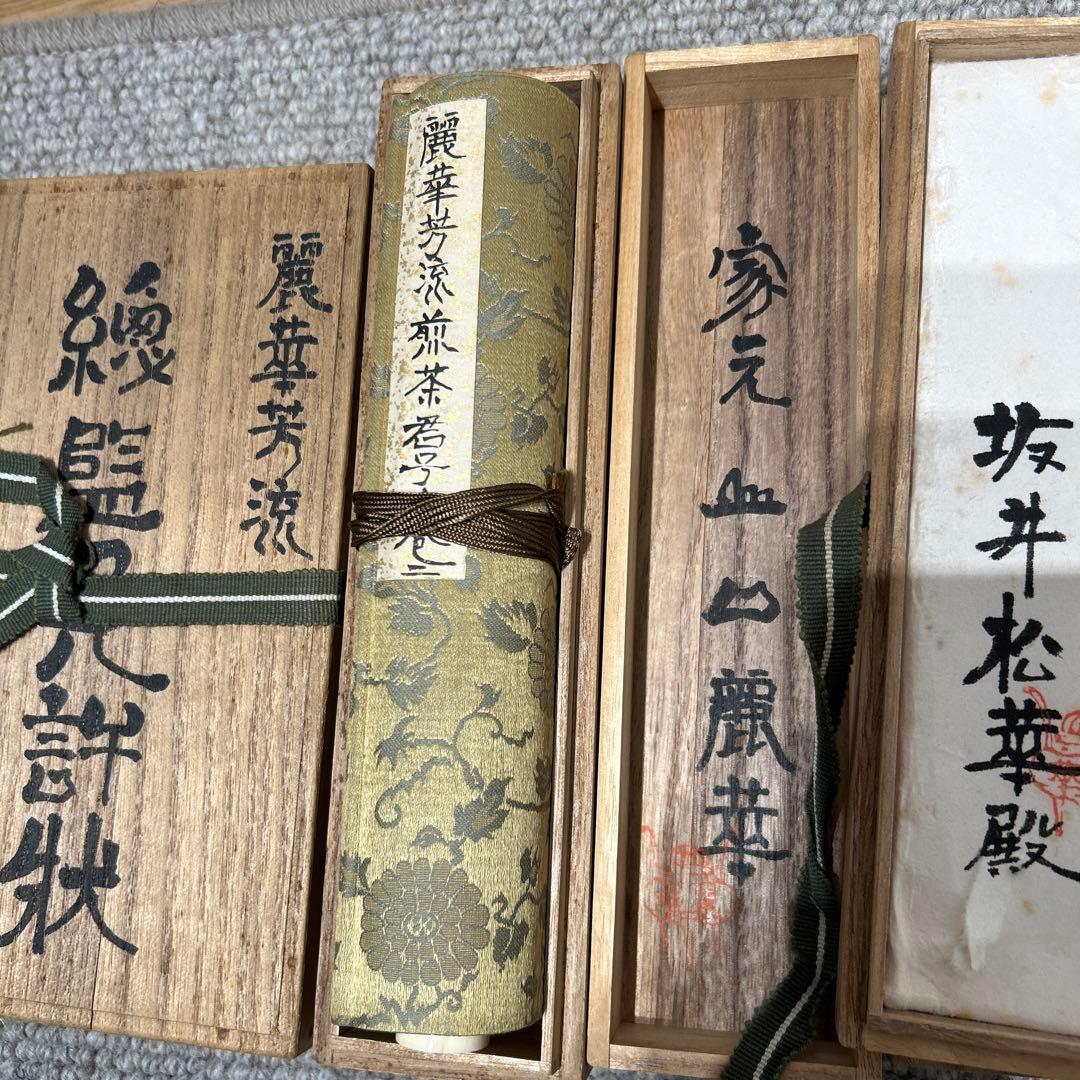 麗華芳流
總監免許状
麗華芳流煎茶君子巻二
家元 山口麗華
坂井松華殿